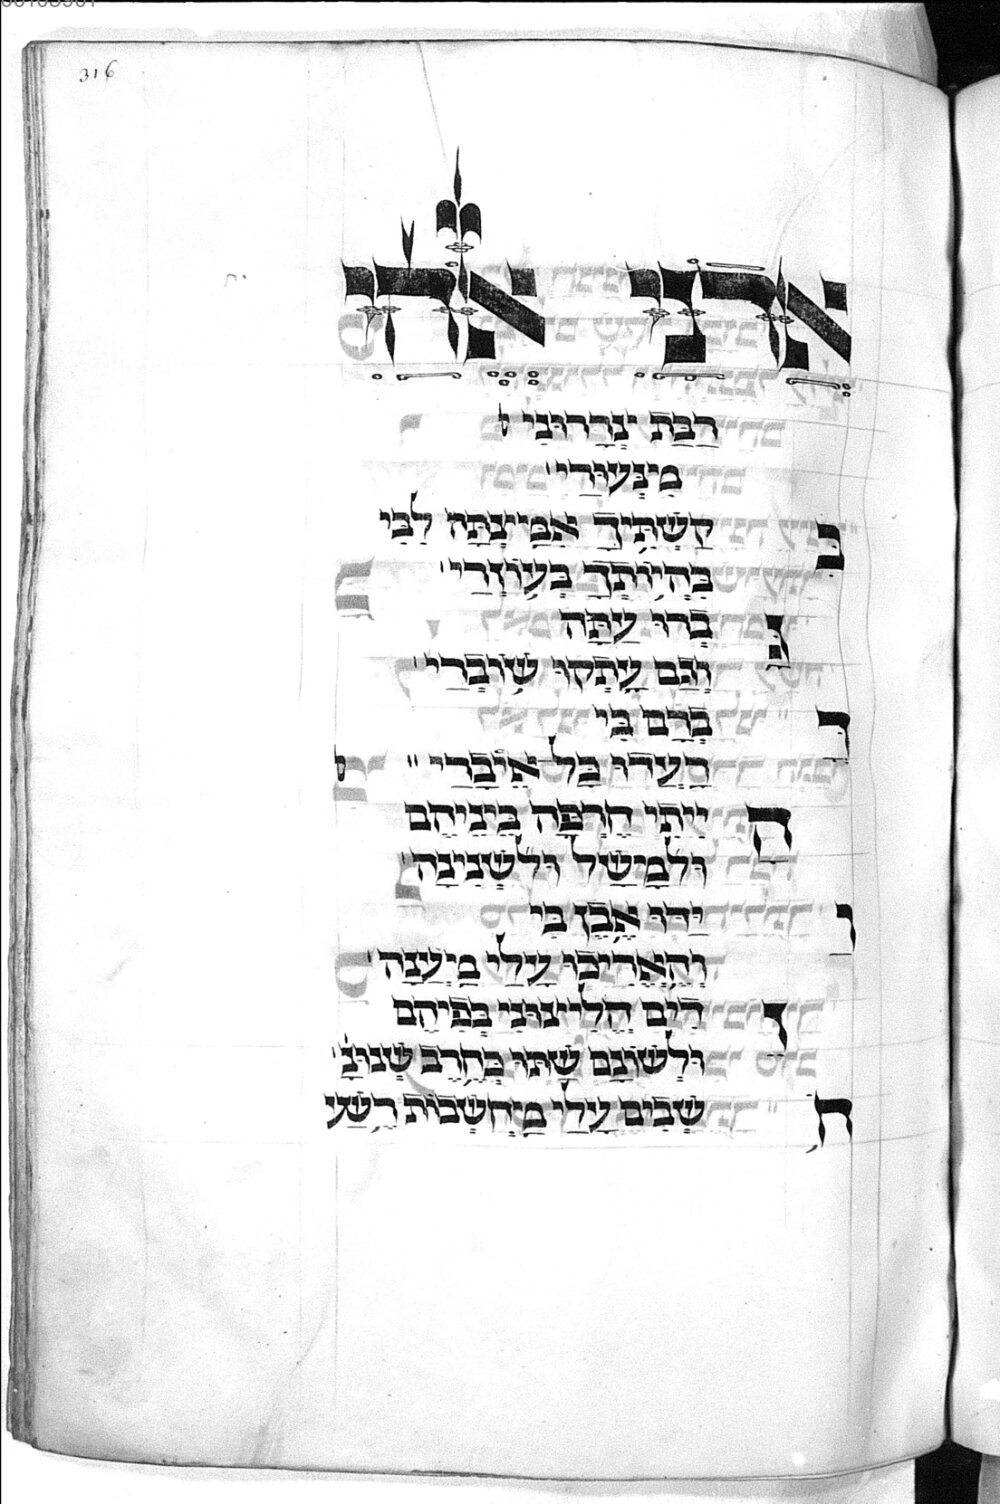 316
אדני
רבת יצררוני
מינעורי
ב קשתיך אמיצתה לבי
בהיותך בעוזרי
ג ברו עתה
וגם עתקו שוברי
ד ברם בי
העדו כל איברי
ה ייתי חרפה ביניהם
ולמשל ולשנינה
ו ידו אבן בי
והאריכו עלי מיענה
ז דים הליצוני בפיהם
ולשונם שתו כחרב שנונ'
ח שבים עלי מיחשבות רשע